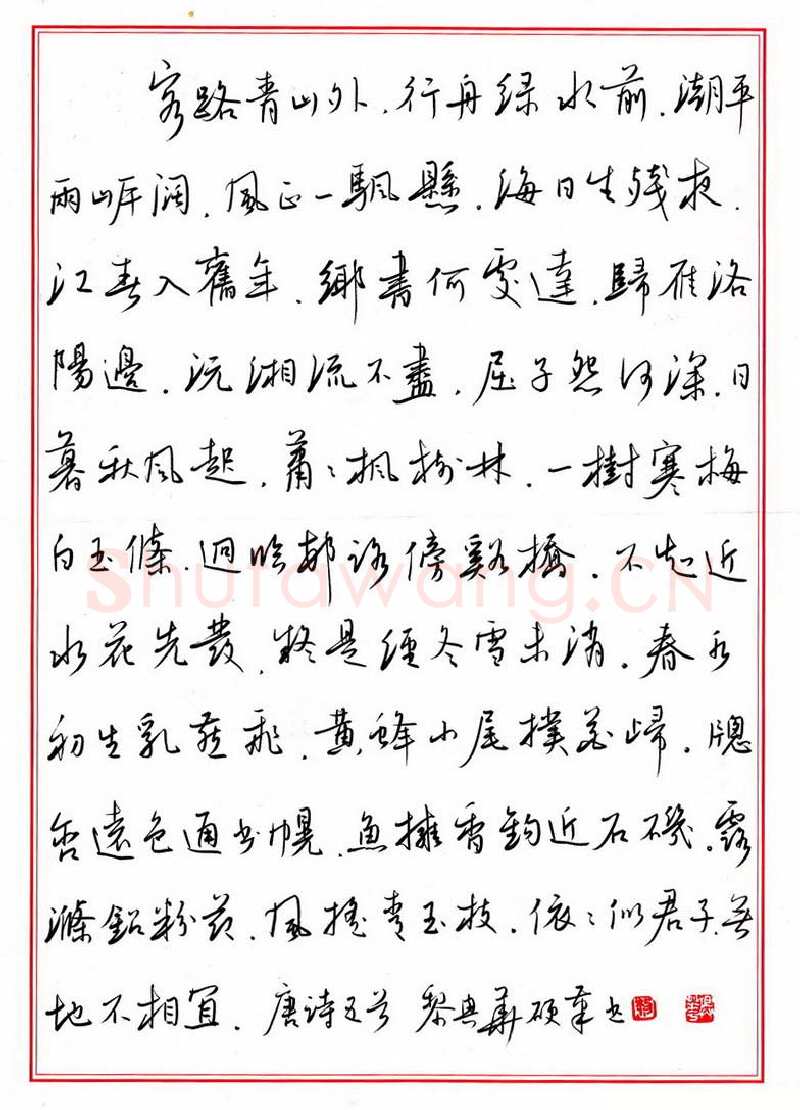 客路青山外.行舟绿水前.潮平
兩岸闊.風正一颿懸.海日生殘夜.
江春入舊年.鄉書何處達.歸雁洛
陽邊.沅湘流不盡.屈子怨何深.日
暮秋風起.蕭〻楓樹林.一樹寒梅
白玉條.迥臨邨路傍谿橋.不知近
水花先發.疑是經冬雪未消.春水
初生乳燕飛.黃蜂小尾撲花歸.牕
含遠色通書幌.魚擁香鈎近石磯.露
滌鉛粉節.風搖青玉枝.依〻似君子.無
地不相宜.唐詩五首 黎典華碩筆書
Shufawang.CN